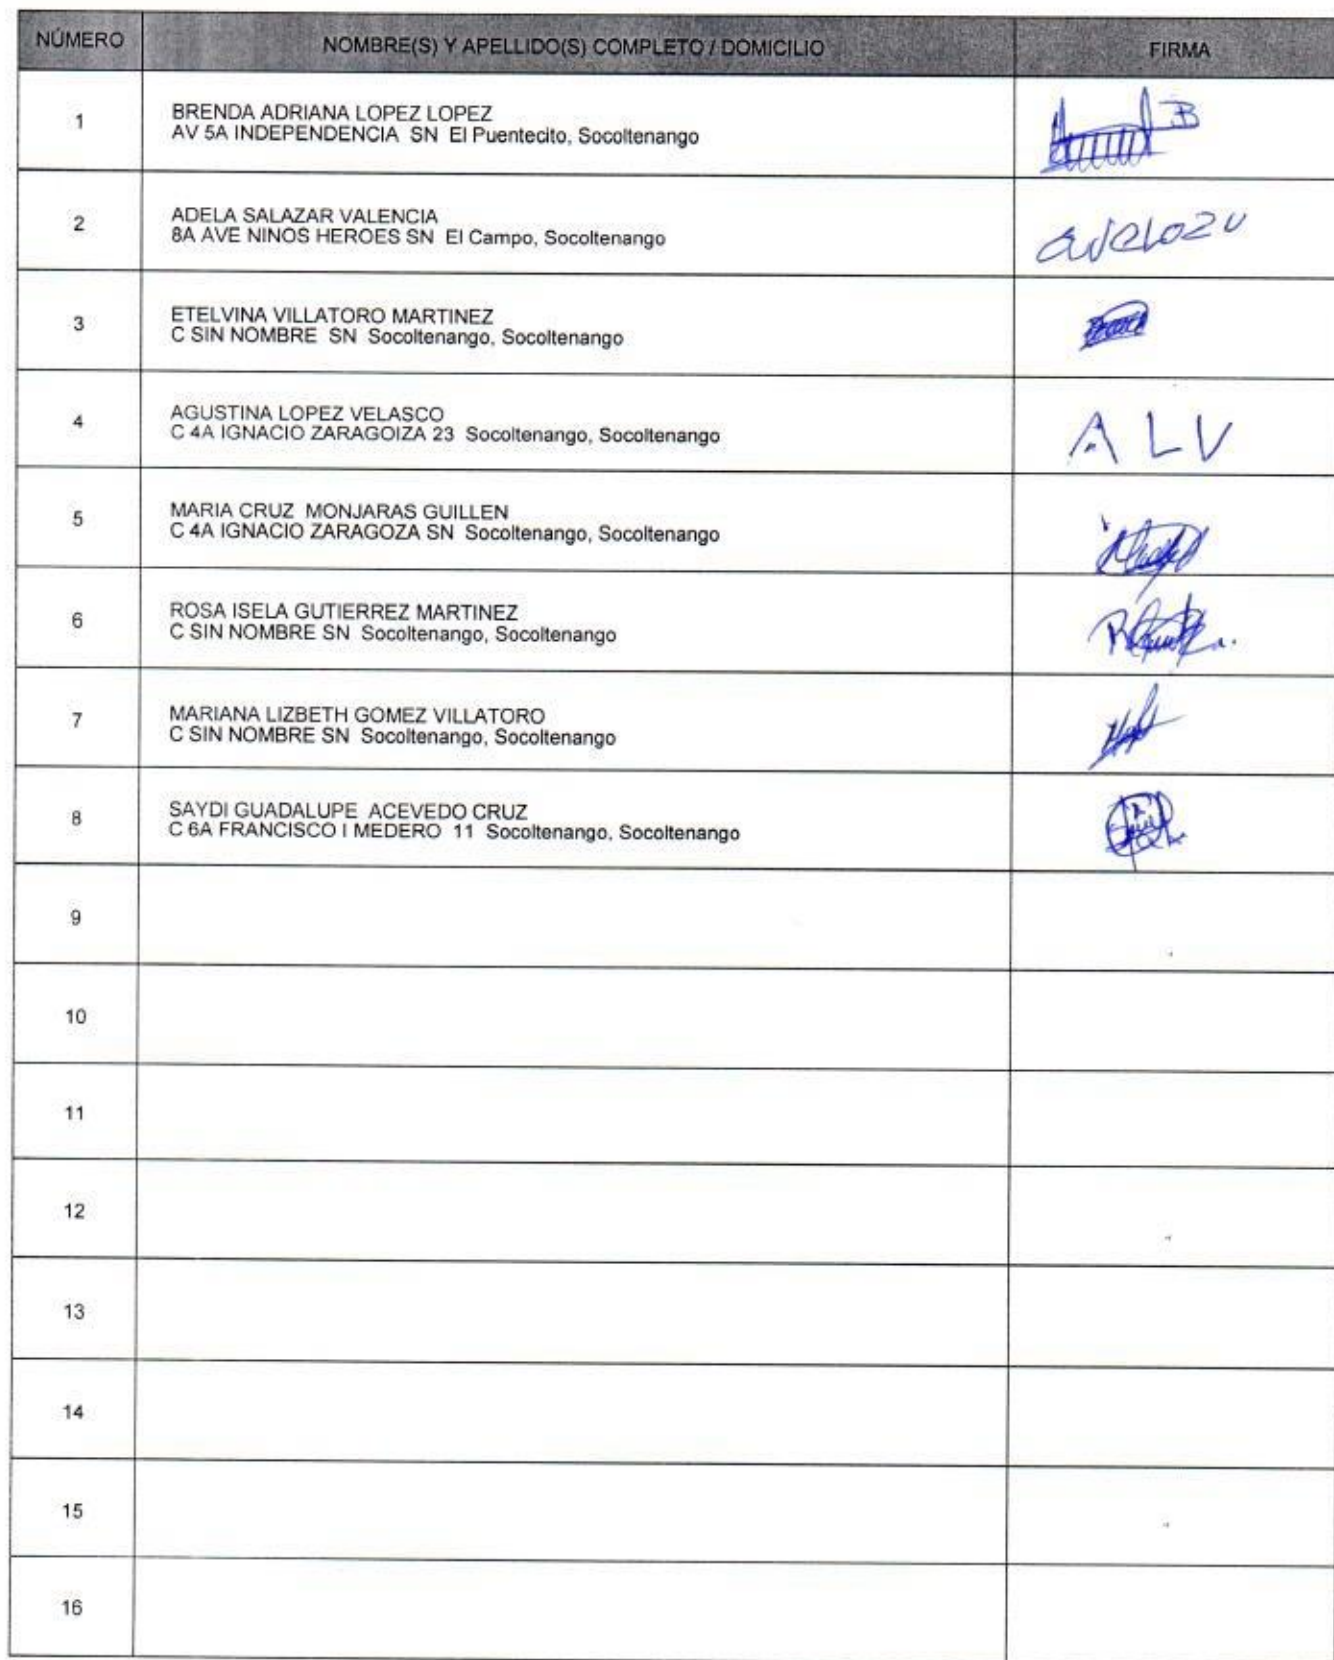 NÚMERO NOMBRE(S) Y APELLIDO(S) COMPLETO / DOMICILIO FIRMA
1 BRENDA ADRIANA LOPEZ LOPEZ
AV 5A INDEPENDENCIA SN El Puentecito, Socoltenango
B
2 ADELA SALAZAR VALENCIA
8A AVE NINOS HEROES SN El Campo, Socoltenango
3 ETELVINA VILLATORO MARTINEZ
C SIN NOMBRE SN Socoltenango, Socoltenango
4 AGUSTINA LOPEZ VELASCO
C 4A IGNACIO ZARAGOIZA 23 Socoltenango, Socoltenango
A L V
5 MARIA CRUZ MONJARAS GUILLEN
C 4A IGNACIO ZARAGOZA SN Socoltenango, Socoltenango
6 ROSA ISELA GUTIERREZ MARTINEZ
C SIN NOMBRE SN Socoltenango, Socoltenango
7 MARIANA LIZBETH GOMEZ VILLATORO
C SIN NOMBRE SN Socoltenango, Socoltenango
8 SAYDI GUADALUPE ACEVEDO CRUZ
C 6A FRANCISCO I MEDERO 11 Socoltenango, Socoltenango
9
10
11
12
13
14
15
16